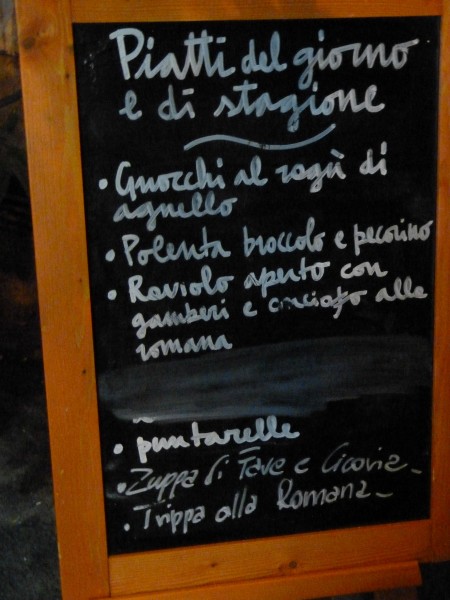 Piatti del giorno
e di stagione
• Gnocchi al ragù di
agnello
• Polenta broccolo e pecorino
• Raviolo aperto con
gamberi e alla
romana
• puntarelle
• Zuppa di Fave e Cicoria -
• Trippa alla Romana -